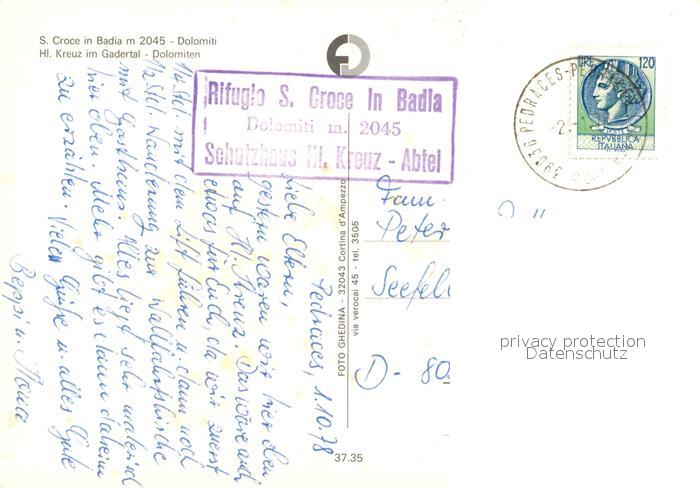 S. Croce in Badia m 2045 - Dolomiti
Hl. Kreuz im Gadertal - Dolomiten
Rifugio S. Croce in Badia
Dolomiti m. 2045
Schutzhaus Hl. Kreuz - Abtei
Pedraces, 1.10.78
Liebe Eltern,
gestern waren wir hier oben
auf Hl. Kreuz. Das wäre auch
etwas für Euch, da wir zuerst
1/4 Std. mit dem Lift fuhren u. dann noch
1/2 Std. Wanderung zur Wallfahrtskirche
mit Gasthaus. Alles liegt sehr malerisch
hier oben. Mehr gibt es dann daheim
zu erzählen. Viele Grüße u. alles Gute
Beppi u.
FOTO GHEDINA - 32043 Cortina d'Ampezzo
via verocai 45 - tel. 3505
37.35
LIRE 120
REPVBBLICA
ITALIANA
39036 PEDRACES-PE
Fam.
Peter
Seefel
D - 80
privacy protection
Datenschutz